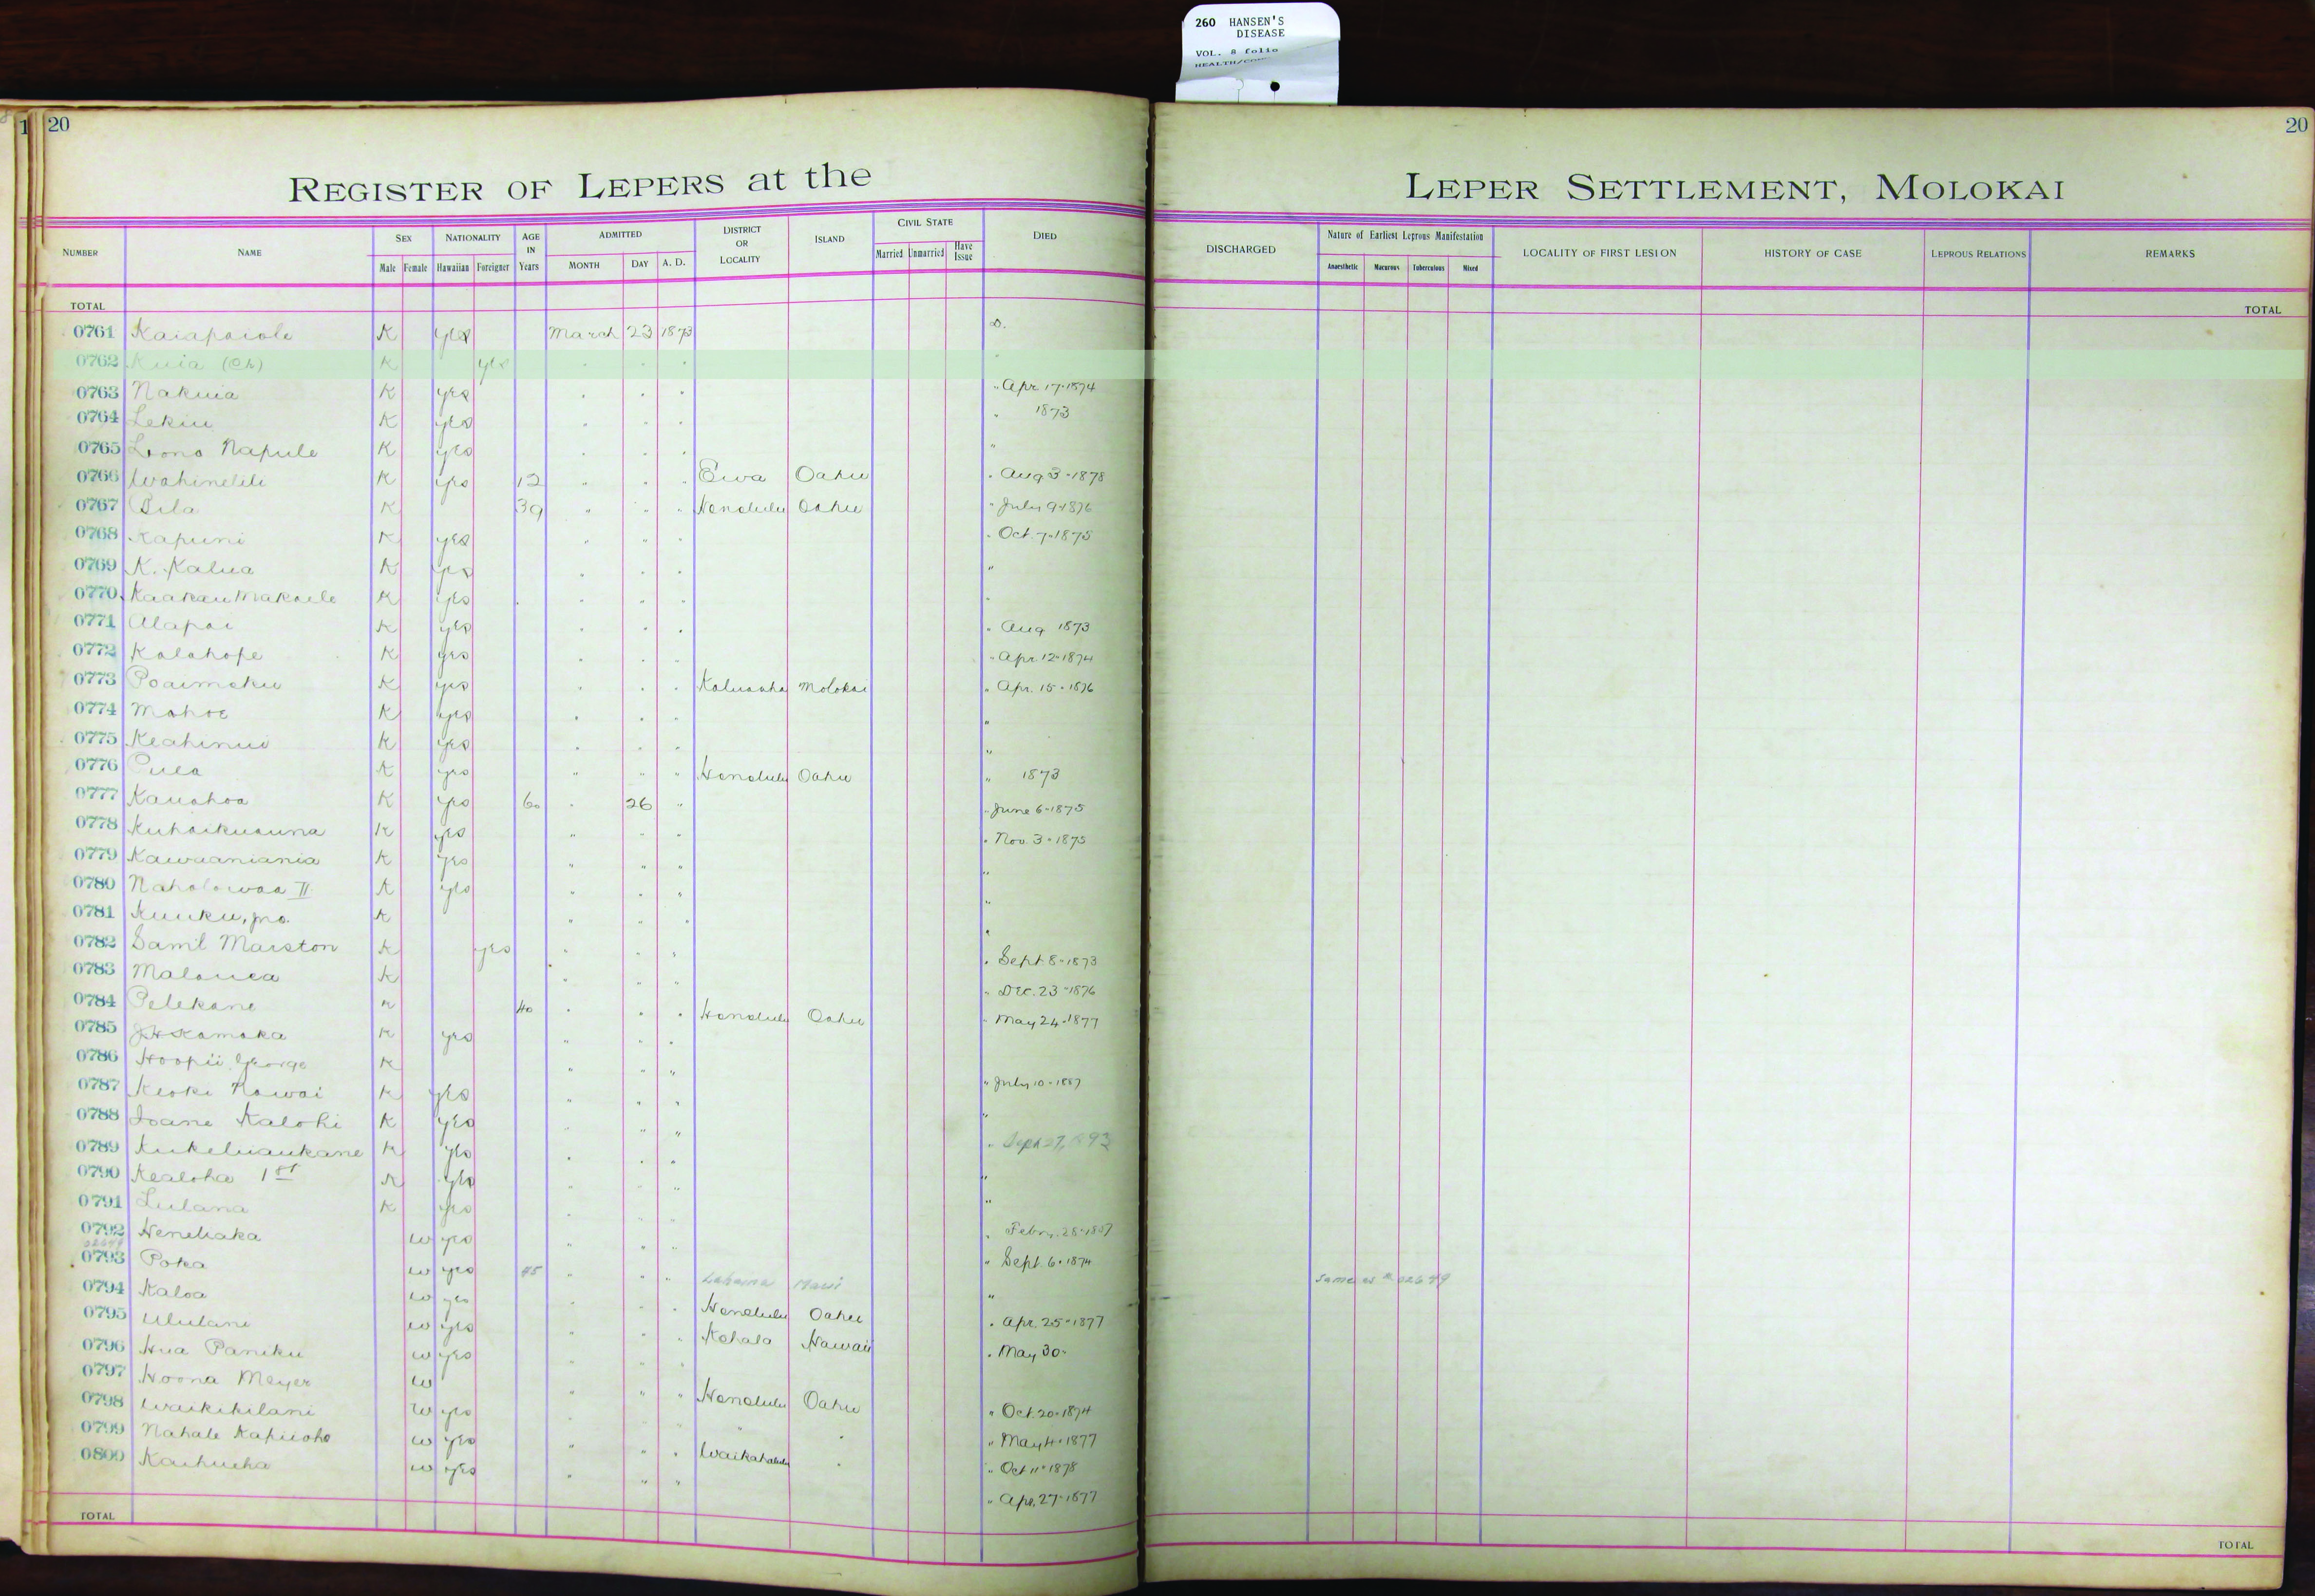 260 HANSEN'S
DISEASE
VOL. 8 folio
20
20
REGISTER OF LEPERS at the LEPER SETTLEMENT, MOLOKAI
NUMBER NAME SEX NATIONALITY AGE IN Years ADMITTED DISTRICT OR LOCALITY ISLAND CIVIL STATE DIED DISCHARGED Nature of Earliest Leprous Manifestation LOCALITY OF FIRST LESION HISTORY OF CASE LEPROUS RELATIONS REMARKS
Male Female Hawaiian Foreigner MONTH DAY A. D. Married Unmarried Have Issue Anaesthetic Macurous Tuberculous Mixed
TOTAL TOTAL
0761 Kaiapaiole K yes March 23 1873 D.
0762 Kuia (Ch) K yes " " "
0763 Nakuia K yes " " " " Apr. 17-1874
0764 Lekiu K yes " " " " 1873
0765 Lono Napule K yes " " " "
0766 Wahinelili K yes 12 " " " Ewa Oahu " Aug 3-1878
0767 Pila K 39 " " " Honolulu Oahu " July 9-1876
0768 Kapuni K yes " " " " Oct. 7-1875
0769 K. Kalua K yes " " " "
0770 Kaakau Makaele K yes " " " "
0771 Alapai K yes " " " " Aug 1873
0772 Kalahope K yes " " " " Apr. 12-1874
0773 Poaimoku K yes " " " Kaluaaha Molokai " Apr. 15-1876
0774 Mahoe K yes " " " "
0775 Keahinui K yes " " " "
0776 Pula K yes " " " Honolulu Oahu " 1873
0777 Kauahoa K yes 60 " 26 " " June 6-1875
0778 Kuhaikuauna K yes " " " " Nov. 3-1875
0779 Kawaaniania K yes " " " "
0780 Naholowaa II K yes " " " "
0781 Kuuku, jno. K " " " "
0782 Saml Marston K yes " " " " Sept 8-1873
0783 Malanea K " " " " Dec. 23-1876
0784 Pelekane K 40 " " " Honolulu Oahu " May 24-1877
0785 J.H. Kamaka K yes " " "
0786 Hoopii George K " " " " July 10-1887
0787 Keoki Nawai K yes " " " "
0788 Ioane Kalohi K yes " " " " Sept 27, 1893
0789 Kukeluaukane K yes " " " "
0790 Kealoha 1st K yes " " " "
0791 Lulana K yes " " " " Feby. 28-1887
0792 Heneliaka W yes " " " " Sept. 6-1874
02649
0793 Poka W yes 45 " " " Lahaina Maui " Same as # 02649
0794 Kaloa W yes " " " Honolulu Oahu " Apr. 25-1877
0795 Ululani W yes " " " Kohala Hawaii " May 30-
0796 Hua Paniku W yes " " "
0797 Hoona Meyer W " " " Honolulu Oahu " Oct. 20-1874
0798 Waikikilani W yes " " " " " " May 4-1877
0799 Nahale Kapuoho W yes " " " Waikahalulu " " Oct 11-1878
0800 Kaihueha W yes " " " " Apr. 27-1877
TOTAL TOTAL